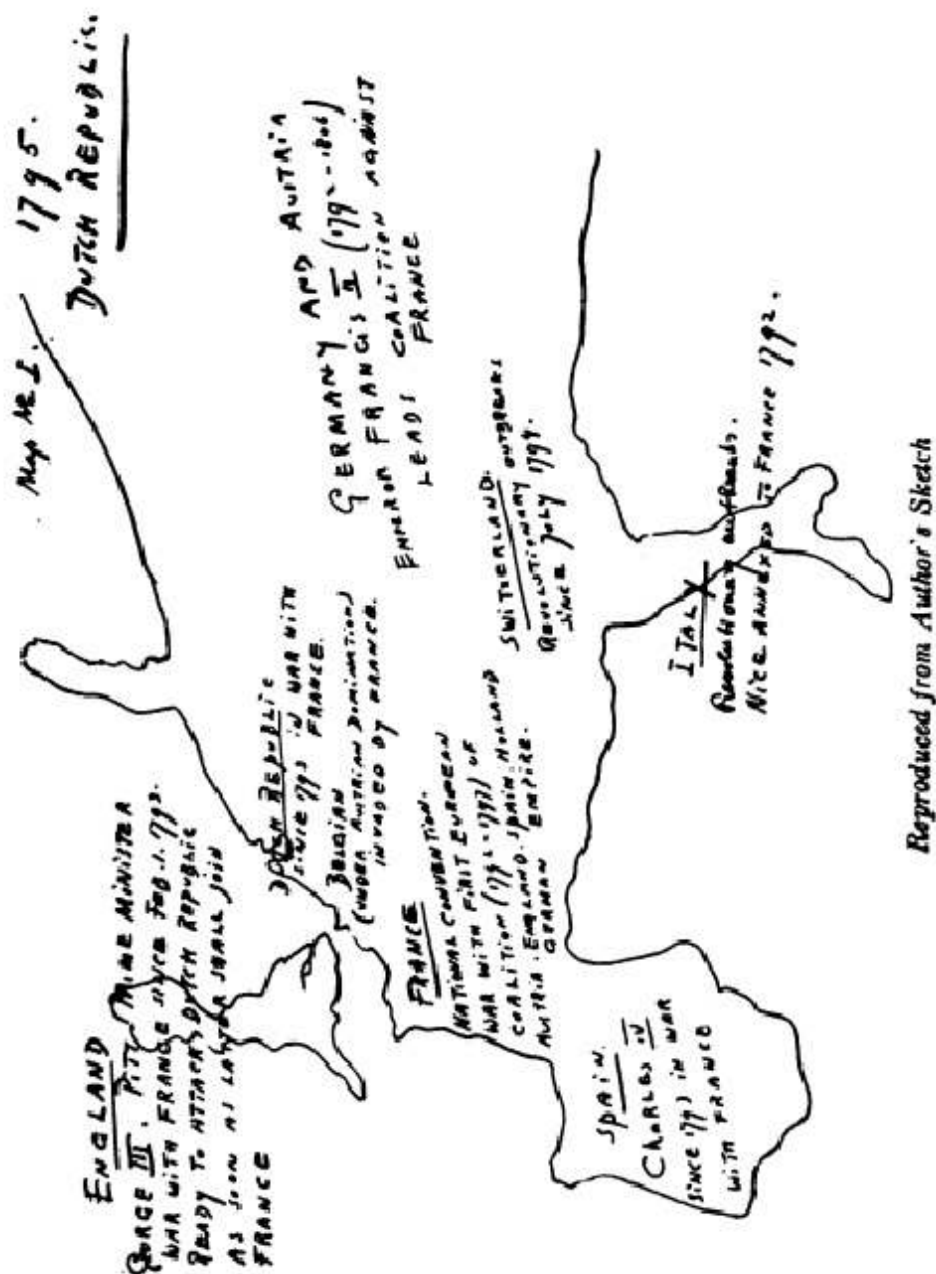 Map No I.
1795.
DUTCH REPUBLIC.
ENGLAND
GEORGE III. PITT PRIME MINISTER
WAR WITH FRANCE SINCE FEB. 1. 1793.
READY TO ATTACK DUTCH REPUBLIC
AS SOON AS LATTER SHALL JOIN
FRANCE
DUTCH REPUBLIC
SINCE 1793 IN WAR WITH
FRANCE.
BELGIAN
(UNDER AUSTRIAN DOMINATION)
INVADED BY FRANCE.
GERMANY AND AUSTRIA
EMPEROR FRANCIS II (1792-1806)
LEADS COALITION AGAINST
FRANCE
FRANCE
NATIONAL CONVENTION.
WAR WITH FIRST EUROPEAN
COALITION (1792-1797) OF
AUSTRIA. ENGLAND. SPAIN. HOLLAND
GERMAN EMPIRE.
SWITZERLAND.
REVOLUTIONARY OUTBREAKS
SINCE JULY
SPAIN.
CHARLES IV
SINCE 1793 IN WAR
WITH FRANCE
ITALY
Revolutionary outbreaks.
NICE ANNEXED TO FRANCE 1792.
Reproduced from Author's Sketch